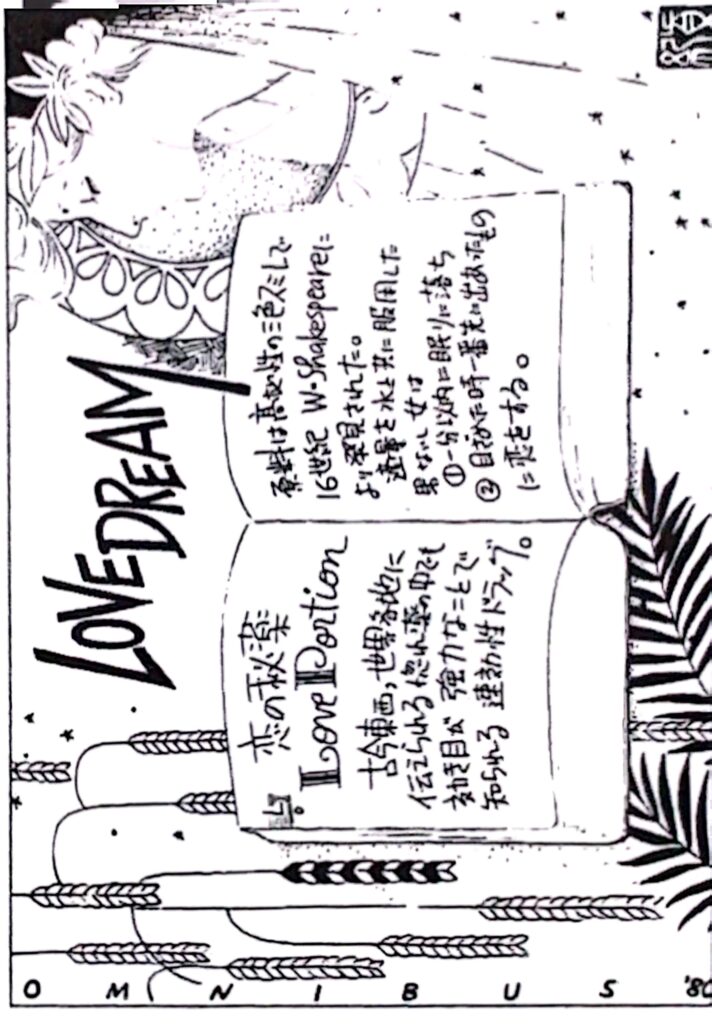 LOVE
DREAM
恋の秘薬
Love Portion
古今東西,世界各地に
伝えられる惚れ薬の中でも
効き目が強力なことで
知られる速効性ドラッグ。
原料は高山性の三色スミレで
16世紀 W・Shakespeareに
より発見された。
適量を水と共に服用した
男ないし女は
①一分以内に眠りに落ち
②目ざめた時一番先に出あったもの
に恋をする。
OMNIBUS '80